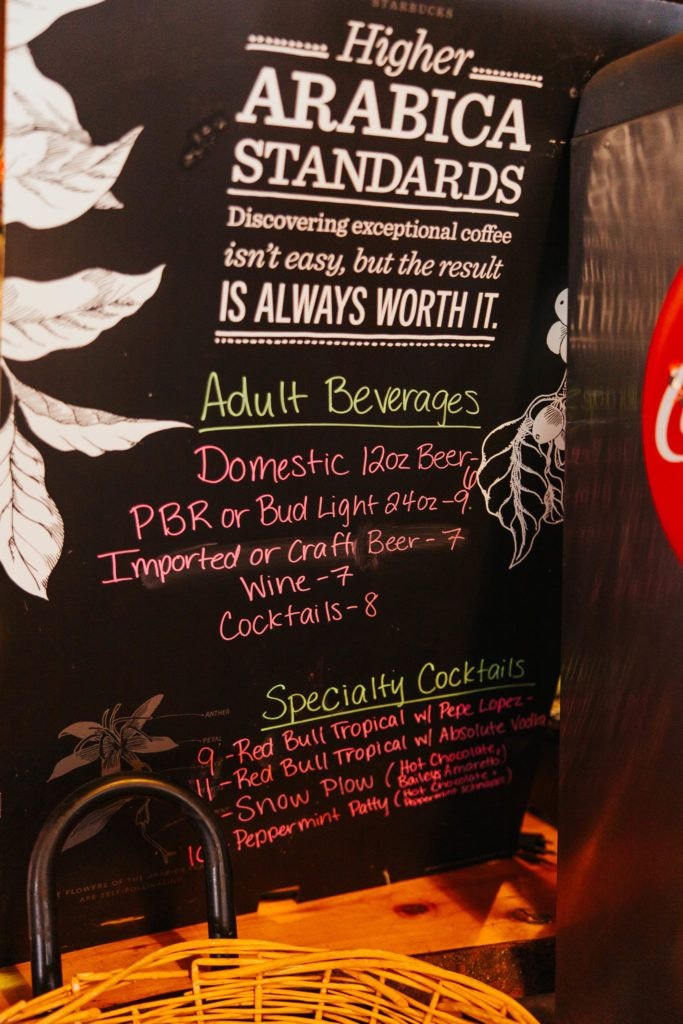 STARBUCKS
Higher
ARABICA
STANDARDS
Discovering exceptional coffee
isn't easy, but the result
IS ALWAYS WORTH IT.
Adult Beverages
Domestic 12oz Beer-
6
PBR or Bud Light 24oz-9.
Imported or Craft Beer-7
Wine-7
Cocktails-8
Specialty Cocktails
9 -Red Bull Tropical w/ Pepe Lopez-
11 -Red Bull Tropical w/ Absolute Vodka
-Snow Plow (Hot Chocolate,
Baileys Amaretto)
Peppermint Patty (Hot Chocolate +
Peppermint Schnapps)
ANTHER
PETAL
FLOWERS OF THE
ARE SELF-POLLINATING